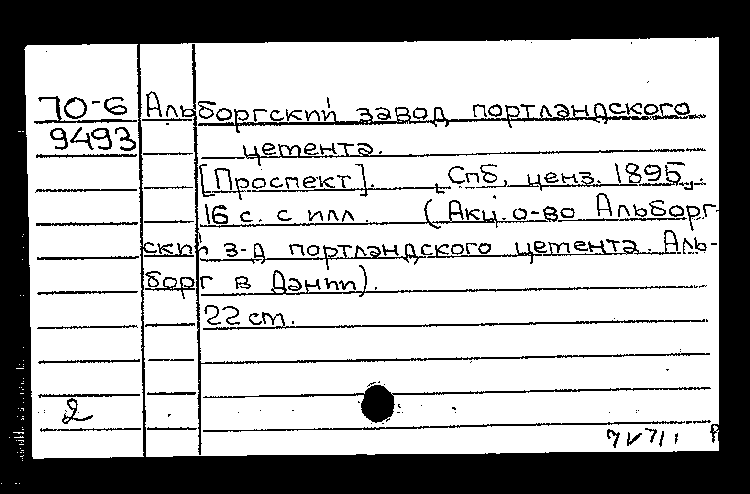 70-6 Альборгский завод портландского
9493 цемента.
[Проспект]. [Спб, ценз. 1895].
16 с. с илл. (Акц. о-во Альборг-
ский з-д портландского цемента. Аль-
борг в Дании).
22 cm.
2
7 V 71